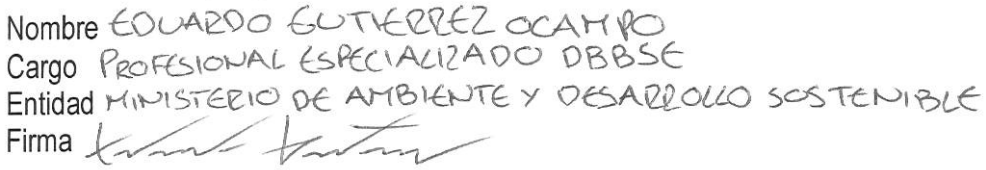 Nombre EDUARDO GUTIERREZ OCAMPO
Cargo PROFESIONAL ESPECIALIZADO DBBSE
Entidad MINISTERIO DE AMBIENTE Y DESARROLLO SOSTENIBLE
Firma